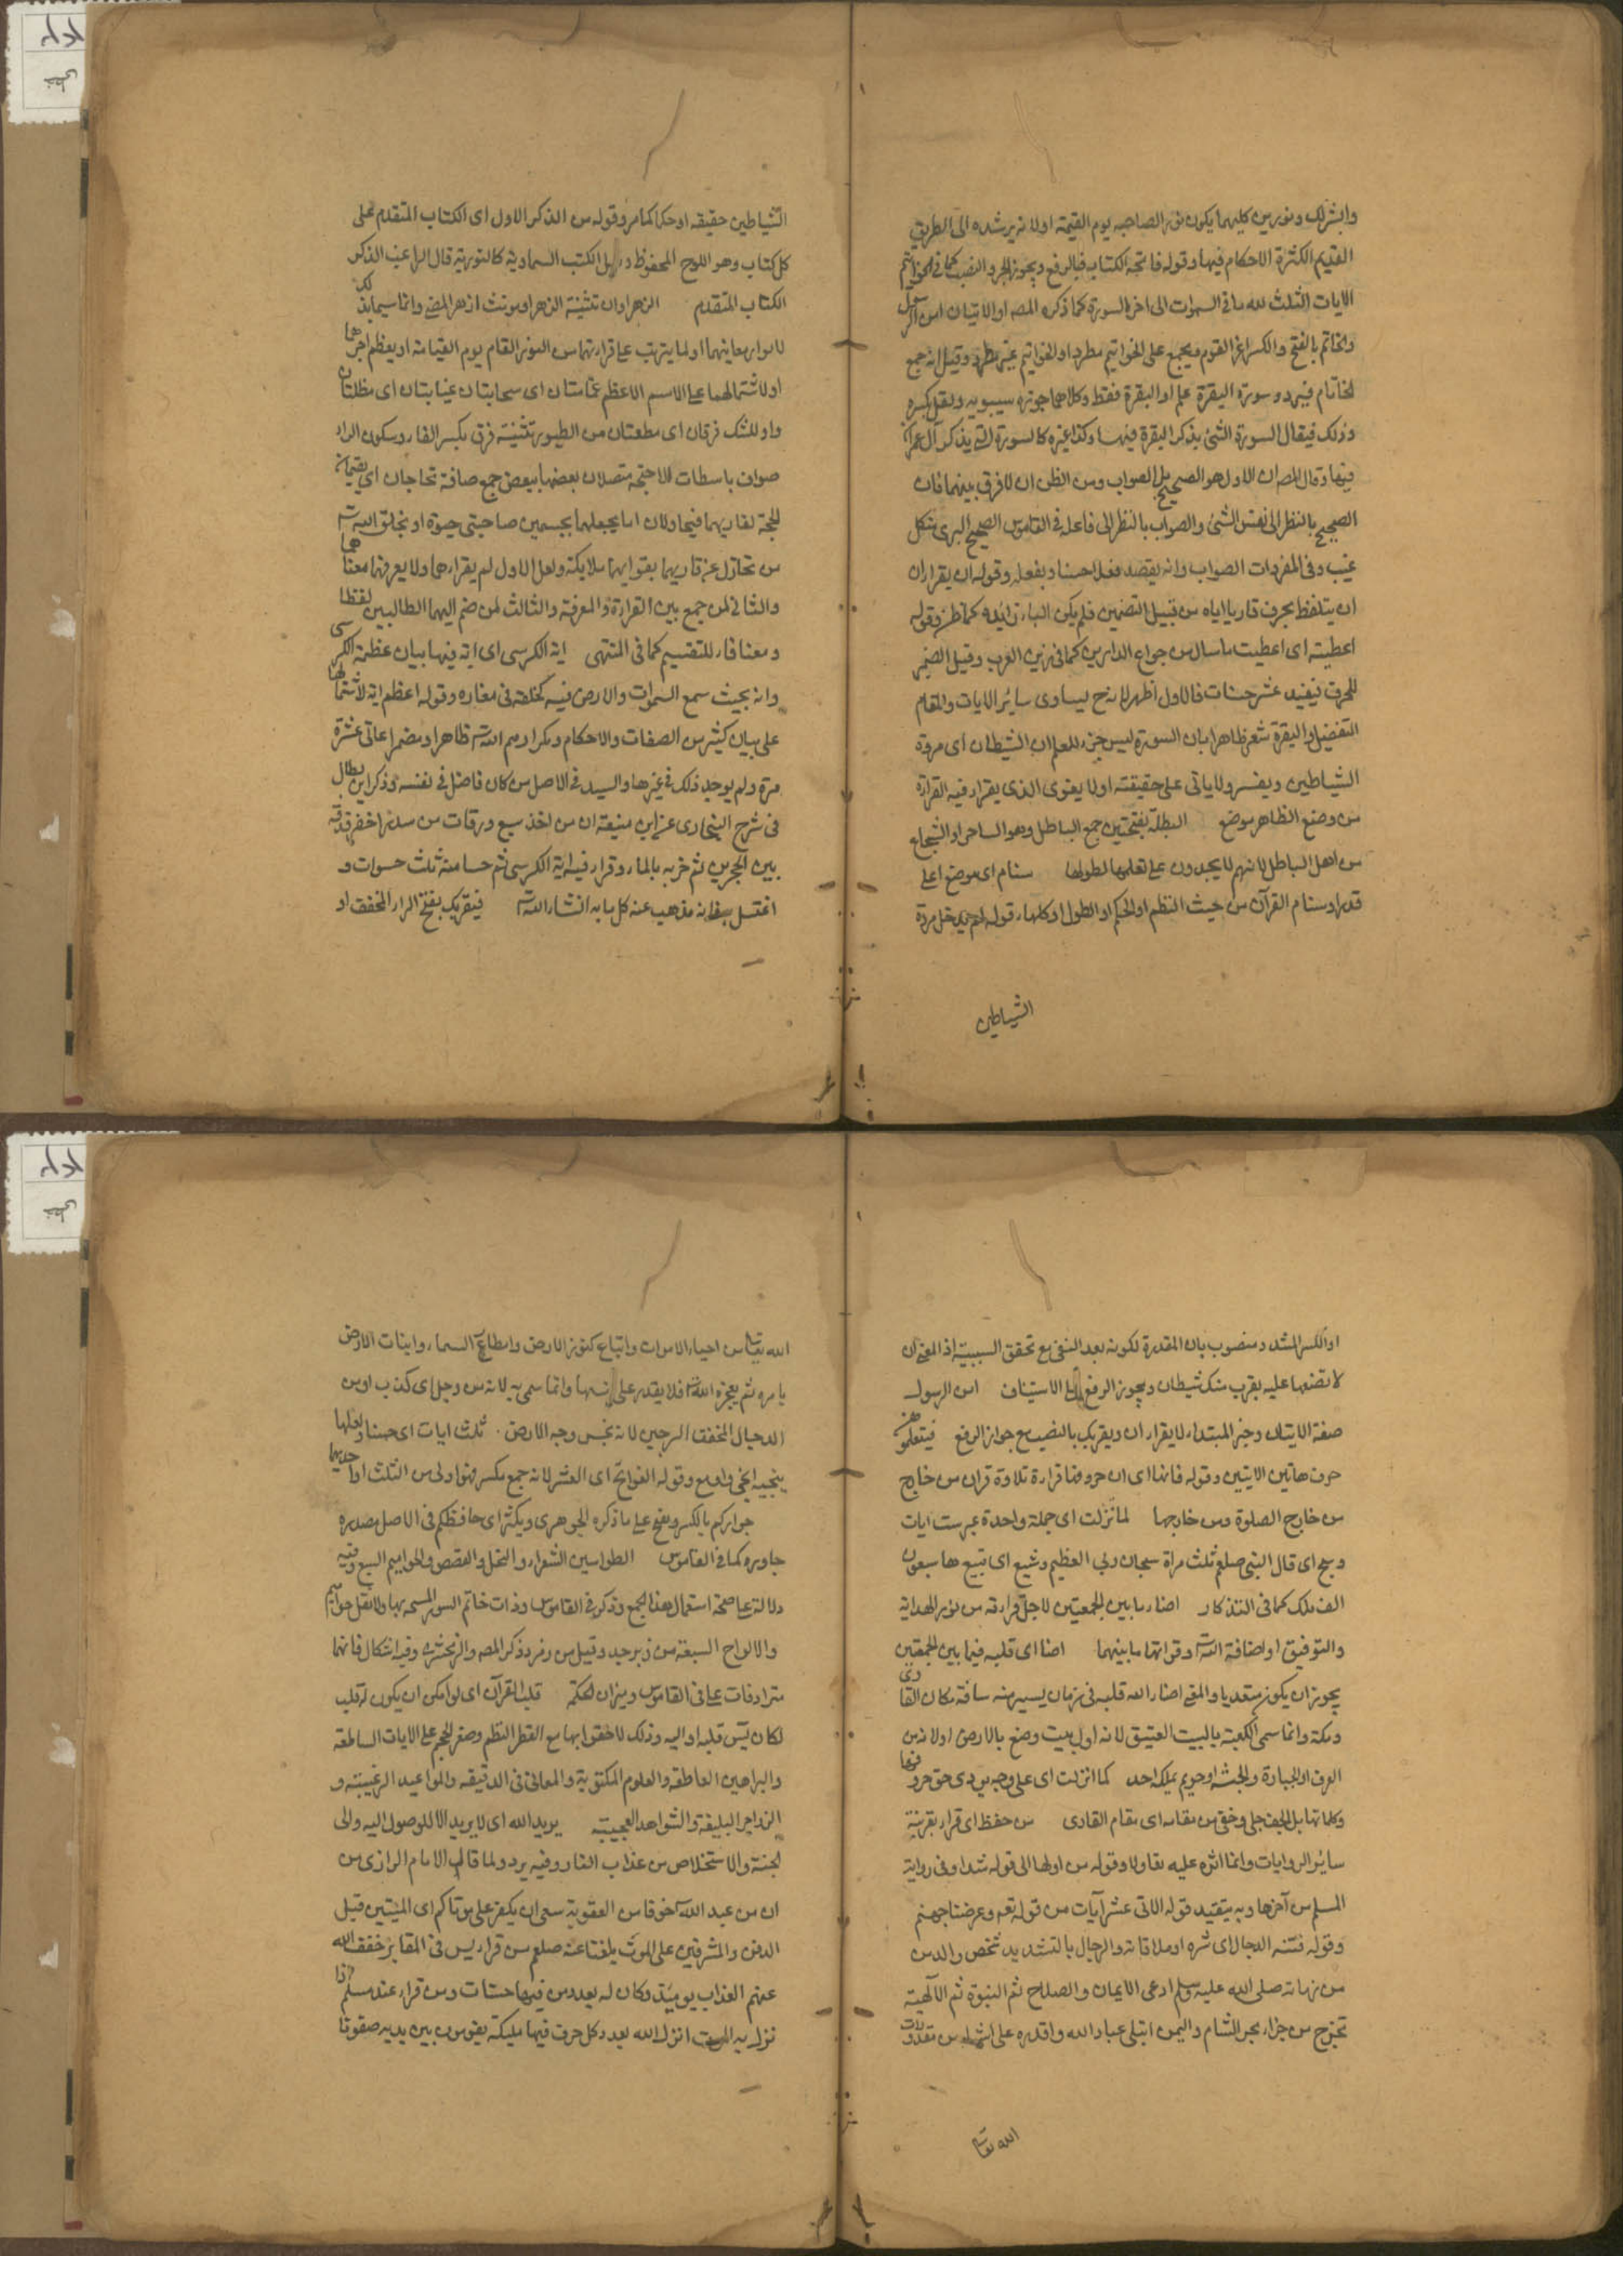 وابشر لك ونورين كليهما يكون نور الصاحبه يوم القيمة او لانه يرشده الى الطريق
القديم الكثرة الاحكام فيها وقوله فاتحة الكتاب فبالرفع ويجوز الجر والنصب كما في الخواتيم
الايات الثلث لله ما في السموات الى اخر السورة كما ذكره المصه او الايتان امن الرسول
والخاتم بالفتح والكسر اخر القوم ويجمع على الخواتيم مطرد او الخواتيم غير مطرد وقيل انه جمع
لخاتام فيرد وسورة البقرة علم او البقرة فقط وكلاهما جوزه سيبويه ونقل بكسره
وذلك فيقال السورة التي يذكر البقرة فيها وكذا غيره كالسورة التي يذكر آل عمران
فيها وقال المصه ان الاول هو الصحيح بل الصواب ومن الظن ان لا فرق بينهما فان
الصحيح بالنظر الى نفس الشئ والصواب بالنظر الى فاعله في القاموس الصحيح البرى من كل
عيب وفي المفردات الصواب وانه يقصد فعلا حسنا ويفعله وقوله ان يقرا ان
ان يتلفظ بحرف قاريا اياه من قبيل التضمين فلم يكن الباء زائده كما ظن وقوله
اعطيته اى اعطيت ما سال من جوامع الدارين كما في زين العرب وقيل الضمير
للحرف فيفيد عشر حسنات فالاول اظهر لانه ح يساوى سائر الايات والمقام
التفضيل والبقرة شعر ظاهرا بان السورة ليس جزء للعلم ان الشيطان اى مردة
الشياطين ويفسر ولا ياتى على حقيقته اولا يغوى الذى يقرا فيه القراءة
من وضع الظاهر موضع البطلة بفتحتين جمع الباطل وهو الساحر او الشجاع
من اهل الباطل لانهم لا يجدون على تعلمها لطولها سنام اى موضع اعلى
قدرا وسنام القرآن من حيث النظم او الحكم او الطول او كلها، قوله لم يدخل مردة
الشياطين
الشياطين حقيقه او حكما كما مر وقوله من الذكر الاول اى الكتاب المتقدم على
كل كتاب وهو اللوح المحفوظ وقيل الكتب السماوية كالتورية قال الراغب الذكر
الكتاب المتقدم الزهراوان تثنية الزهرا ومونث ازهر المضئ وانما سميا بذلك
لانوار معاينهما او لما يترتب على قراءتهما من النور التام يوم القيامة او يعظم اجرهما
او لاشتمالهما على الاسم الاعظم غمامتان اى سحابتان غيابتان اى مظلتان
واو للشك فرقان اى مطعتان من الطيور تثنية فرق بكسر الفاء وسكون الراء
صواف باسطات الاجنحة متصلان بعضها ببعض جمع صافة تحاجان اى يقيمان
للحجة لقاريهما فيحاولان اما بجعلهما بجسمين صاحبتى حيوة او بخلق الله تع
من تحاول عن قاريهما بقوايهما ملايكة ولعل الاول لم يقراءهما ولا يعرفهما معناهما
والثاني لمن جمع بين القراءة والمعرفة والثالث لمن ضم اليهما الطالبين لفظا
ومعنا فاء للتقسيم كما في المنتهى اية الكرسى اى اية فيها بيان عظمة الكرسى
وانه بحيث سمع السموات والارض فيه كحلقة في مغازه وقوله اعظم اية لاشتمالها
على بيان كثير من الصفات والاحكام وتكرار اسم الله تع ظاهرا ومضمرا عاتى عشرة
مرة ولم يوجد ذلك في غيرها والسيد في الاصل من كان فاضل في نفسه وذكر ابن بطال
في شرح البخارى عن ابن منبه ان من اخذ سبع ورقات من سدر اخضر فدقه
بين الحجرين ثم ضربه بالماء وقراء فيه اية الكرسى ثم حسا منه ثلث حسوات و
اغتسل بيقانه مذهب عنه كل ما به انشاء الله تع فيقربك بفتح الراء المخفف او
او الكسر المشدد منصوب بان المقدرة لكونه بعد النفي مع تحقق السببية اذ المعنى ان
لا تضعها عليه يقرب منك شيطان ويجوز الرفع الاستيناف امن الرسول
صفة الايتان وخبر المبتداء، لا يقراء ان ويقربك بالنصب مع جواز الرفع فيتعلموهن
حرف هاتين الايتين وقوله فانها اى ان حروفها قراءة تلاوة قران من خارج
من خارج الصلوة ومن خارجها لما نزلت اى جملة واحدة غير ست ايات
وسبح اى قال النبي صلعم ثلث مراة سبحان ربى العظيم وشيع اى تبيع ها سبعون
الف ملك كما في التذكار اضاء ما بين الجمعتين لاجل قراءته من نور الهداية
والتوفيق او اضافة الله تع وقراتها ما بينهما اضا اى قلبه فيما بين الجمعتين
يجوز ان يكون متعديا والمعنى اضاء الله قلبه في زمان يسير منه سافة مكان القارى
ومكة وانما سمى الكعبة بالبيت العتيق لانه اول بيت وضع بالارض او لانه من
الغرق او الجبارة والحبشه او حويم يملكه احد كما انزلت اى على وجه يودى حق حروفها
وكلماتها بل الحيف جلى وخفى من مقامه اى مقام القارى من حفظ اى قراء بقرينة
سائر الروايات وانما اثره عليه تفاولا وقوله من اولها الى قوله شدا وفي رواية
المسلم من آخرها وبه يتقيد قوله الاتى عشر آيات من قوله تعم وعرضنا جهنم
وقوله فتنه الدجال اى شره او ملاقاته والرجال بالتشديد شخص والدس
من زمانه صلى الله عليه وسلم ادعى الايمان والصلاح ثم النبوة ثم الالهية
تخرج من جزاء، بحر الشام واليمن ابتلى عباد الله واقدره على اشياء من مقدورات
الله تعا
الله تعا من احياء الاموات واتباع كنوز الارض وامطار السماء، وابنات الارض
بامره ثم يعجزه الله فلا يقدر على وانما سمى به لانه من دجل اى كذب او من
الدجال المخفف السرجين لانه نجس وجه الارض . ثلث ايات اى حسنا وبعلها
ينجيه الحى واوسع وقوله الفواتح اى العشر لانه جمع مكسر فهو اولى من الثلث او احديهما
جواركم بالكسر وبفتح على ما ذكره الجوهرى ويكثر اى حافظكم في الاصل مصدره
جاوره كما في القاموس الطواسين الشعراء، والنحل والقصص والحواميم السبع وفيه
دلالة على صحة استعمال هذا الجمع وذكر في القاموس وذات خاتم السور المسمى بها ولا تقل حواميم
والالواح السبعة من زبرجد وقيل من زمرد ذكر المصه والزمخشرى وفيه اشكال فانهما
مترادفات على في القاموس وميزان الحكمة قلب القرآن اى لو امكن ان يكون له قلب
لكان يس قلبه او اليه وذلك لاحتوايها مع القطر النظم وصغر الحجم على الايات الساطعة
والبراهين القاطعة والعلوم المكتوبة والمعانى في الدقيقة والمواعيد الرغيبة و
الزواجر البليغة والشواهد العجيبة يريد الله اى لا يريد الا للوصول اليه والى
لجنة والاستخلاص من عذاب النار وفيه يرد ولما قال الامام الرازى من
ان من عبد الله خوفا من العقوبة سمى ان يكفر على موتاكم اى الميتين قبل
الدفن والمشرفين على الموت بلغنا عنه صلعم من قراء يس في المقابر خفف الله
عنهم العذاب يوميذ وكان له بعدد من فيها حسنات ومن قراء عند مسلم اذا
نزل به الموت انزل الله بعدد كل حرف فيها مليكة يقومون بين يديه صفوفا